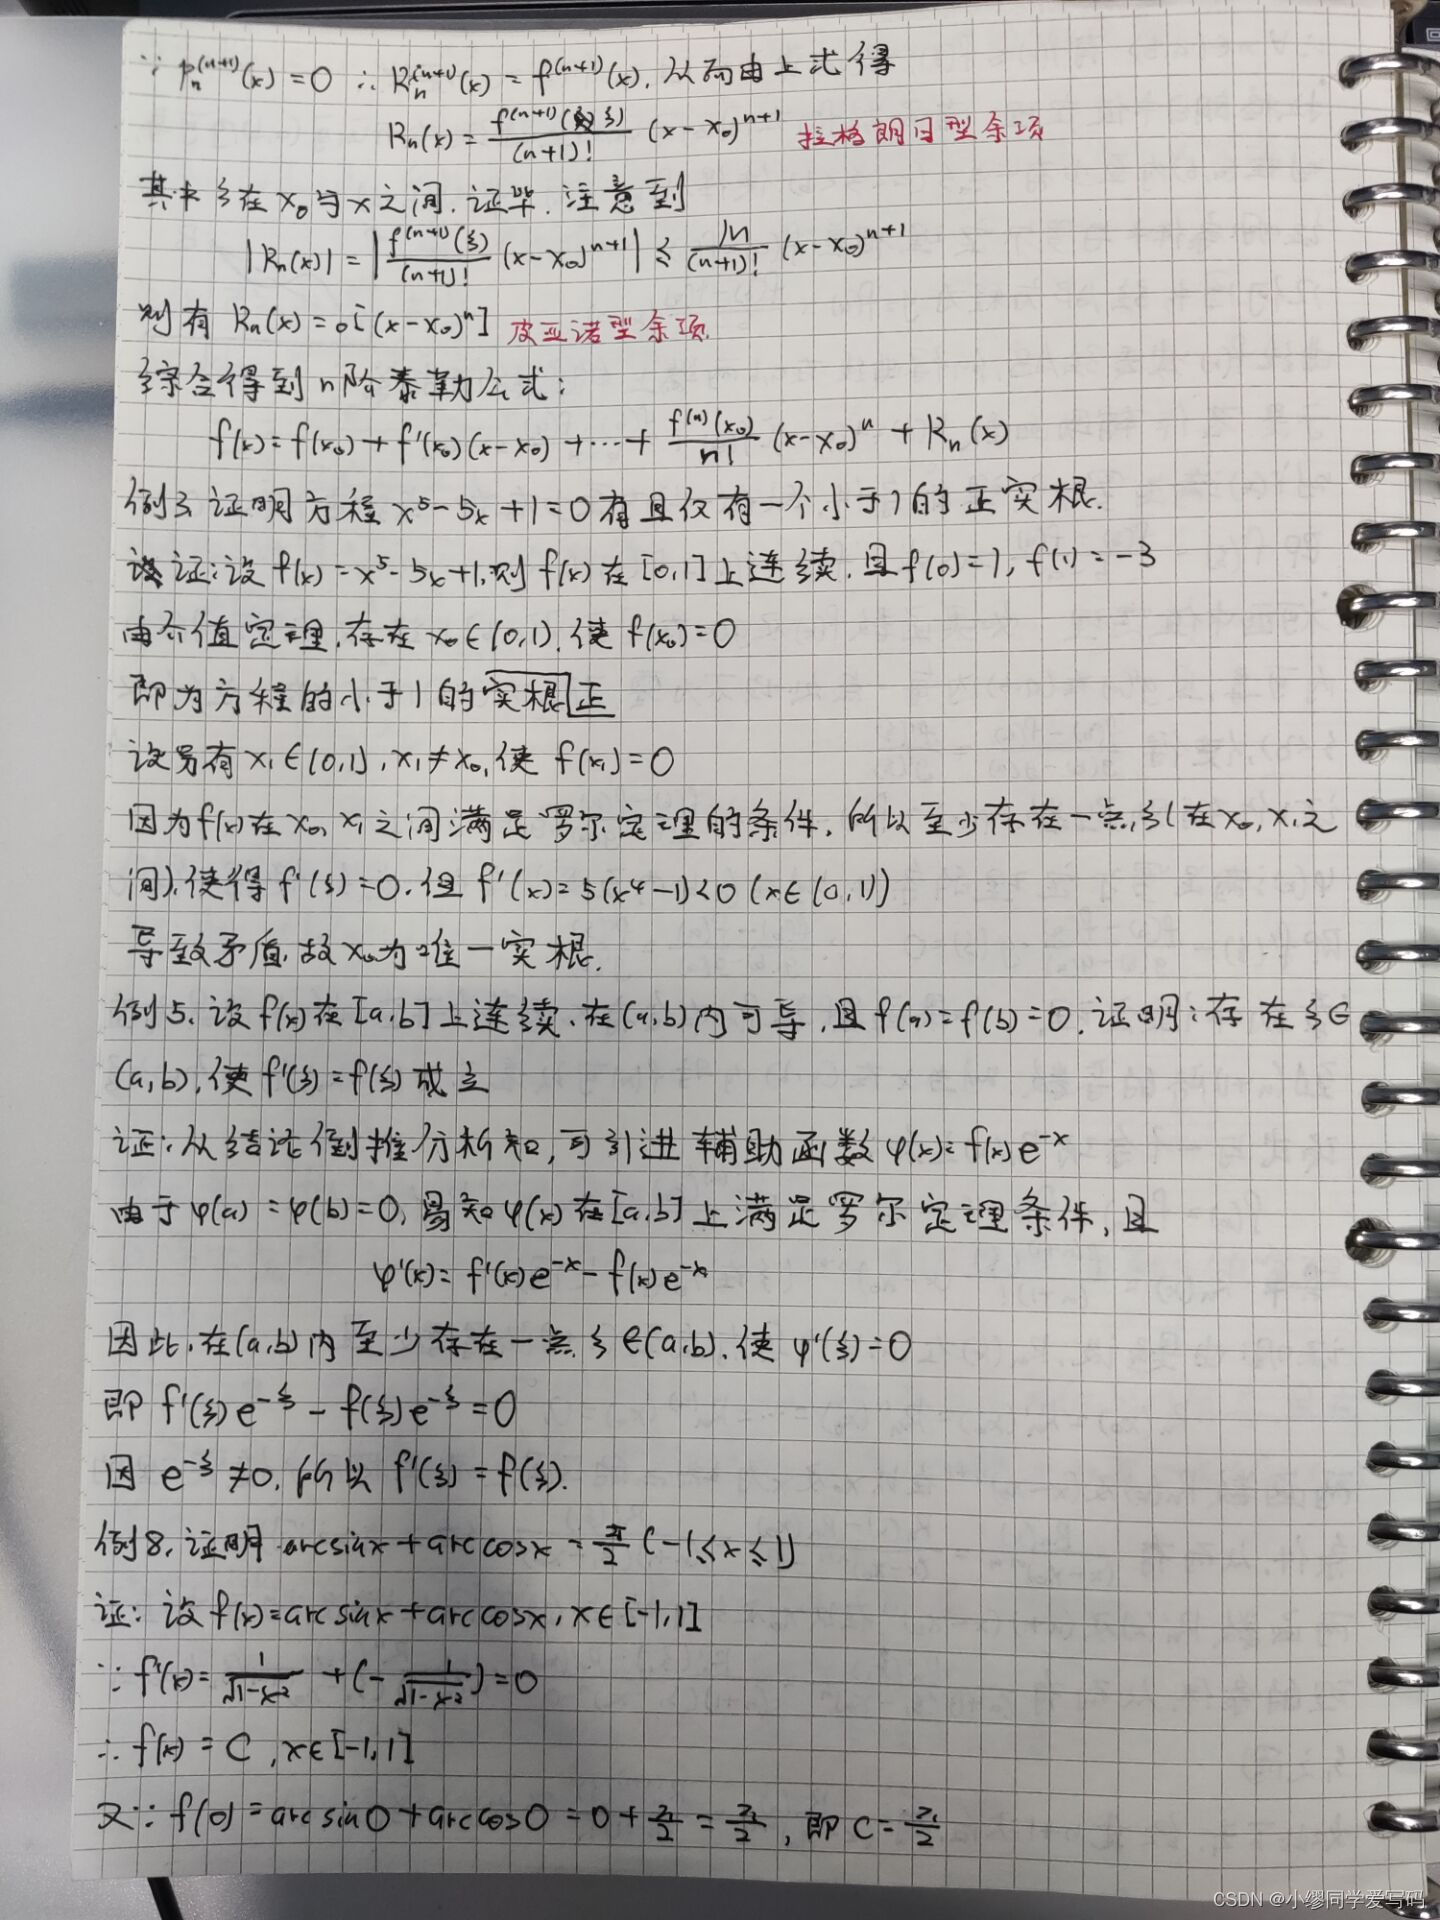 ∵ Pₙ⁽ⁿ⁺¹⁾(x) = 0 ∴ Rₙ⁽ⁿ⁺¹⁾(x) = f⁽ⁿ⁺¹⁾(x), 从而由上式得
Rₙ(x) = f⁽ⁿ⁺¹⁾(ξ)/(n+1)! (x-x₀)ⁿ⁺¹ 拉格朗日型余项
其中ξ在x₀与x之间. 证毕. 注意到
|Rₙ(x)| = |f⁽ⁿ⁺¹⁾(ξ)/(n+1)! (x-x₀)ⁿ⁺¹| ≤ M/(n+1)! (x-x₀)ⁿ⁺¹
则有 Rₙ(x) = o[(x-x₀)ⁿ] 皮亚诺型余项.
综合得到n阶泰勒公式:
f(x) = f(x₀) + f'(x₀)(x-x₀) + ⋯ + f⁽ⁿ⁾(x₀)/n! (x-x₀)ⁿ + Rₙ(x)
例3. 证明方程 x⁵-5x+1=0 有且仅有一个小于1的正实根.
证: 设 f(x) = x⁵-5x+1, 则 f(x) 在 [0,1] 上连续. 且 f(0)=1, f(1)=-3
由介值定理, 存在 x₀∈(0,1), 使 f(x₀)=0
即为方程的小于1的实根正
设另有 x₁∈(0,1), x₁≠x₀, 使 f(x₁)=0
因为f(x)在x₀, x₁之间满足罗尔定理的条件, 所以至少存在一点ξ(在x₀, x₁之
间), 使得 f'(ξ)=0. 但 f'(x)=5(x⁴-1)<0 (x∈(0,1))
导致矛盾, 故x₀为唯一实根.
例5. 设f(x)在[a,b]上连续, 在(a,b)内可导, 且f(a)=f(b)=0. 证明: 存在ξ∈
(a,b), 使 f'(ξ)=f(ξ) 成立
证: 从结论倒推分析知, 可引进辅助函数 φ(x)=f(x)e⁻ˣ
由于 φ(a)=φ(b)=0, 易知φ(x)在[a,b]上满足罗尔定理条件, 且
φ'(x) = f'(x)e⁻ˣ - f(x)e⁻ˣ
因此, 在(a,b)内至少存在一点ξ∈(a,b), 使 φ'(ξ)=0
即 f'(ξ)e^(-ξ) - f(ξ)e^(-ξ) = 0
因 e^(-ξ) ≠ 0, 所以 f'(ξ)=f(ξ).
例8. 证明 arcsinx+arccosx = π/2 (-1≤x≤1)
证: 设 f(x)=arcsinx+arccosx, x∈[-1,1]
∵ f'(x) = 1/√(1-x²) + (-1/√(1-x²)) = 0
∴ f(x) = C, x∈[-1,1]
又∵ f(0) = arcsin0+arccos0 = 0+π/2 = π/2, 即 C=π/2
CSDN @小缪同学爱写码